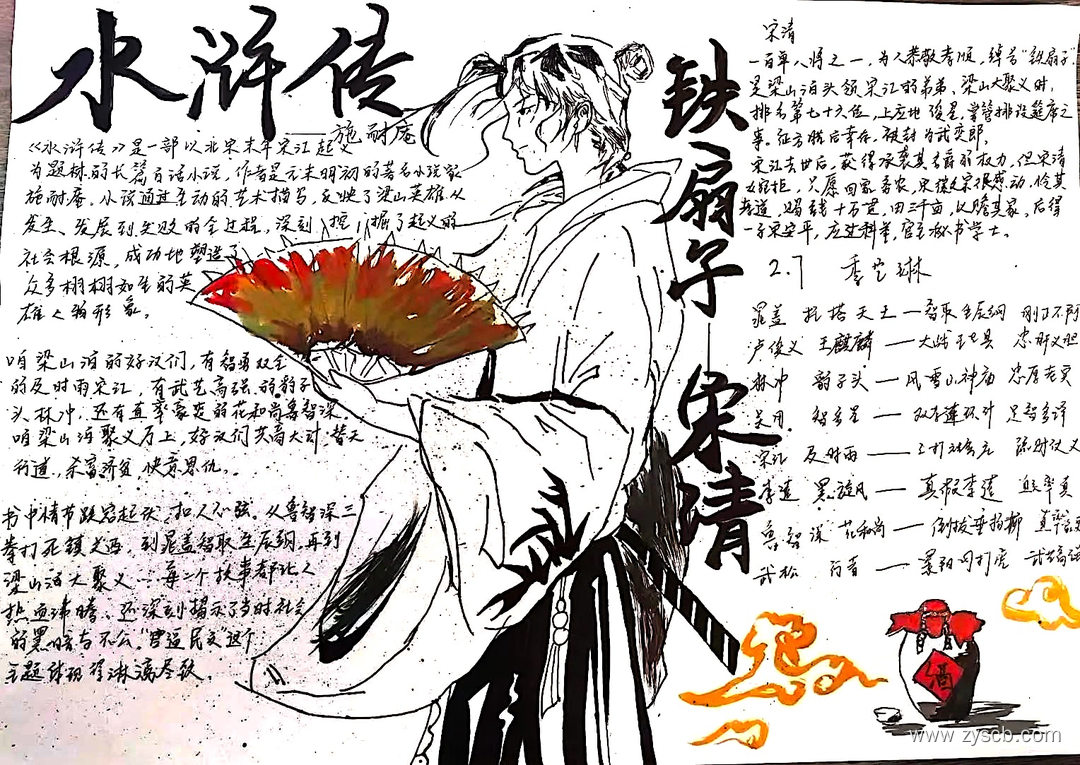 水浒传
——施耐庵
《水浒传》是一部以北宋末年宋江起义
为题材的长篇白话小说，作者是元末明初的著名小说家
施耐庵。小说通过生动的艺术描写，反映了梁山英雄从
发生、发展到失败的全过程，深刻挖掘了起义的
社会根源，成功地塑造了
众多栩栩如生的英
雄人物形象。
咱梁山泊的好汉们，有智勇双全
的及时雨宋江，有武艺高强的豹子
头林冲，还有直率豪爽的花和尚鲁智深
咱梁山泊聚义厅上，好汉们共商大计，替天
行道，杀富济贫，快意恩仇。
书中情节跌宕起伏，扣人心弦。从鲁智深三
拳打死镇关西，到晁盖智取生辰纲，再到
梁山泊大聚义……每一个故事都让人
热血沸腾、还深刻揭示了当时社会
的黑暗与不公，官逼民反这个
主题体现得淋漓尽致。
铁扇子——宋清
宋清
一百单八将之一，为人恭敬孝顺，绰号"铁扇子"
是梁山泊头领宋江的弟弟，梁山大聚义时，
排名第七十六位，上应地俊星，掌管排设筵席之
事。征方腊后幸存，被封为武奕郎，
宋江去世后，获得承袭其名爵的权力，但宋清
只愿回家务农，宋徽宗很感动，怜其
孝道，赐钱十万贯，田三千亩，以赡其家，后得
一子宋安平，应过科举，官至秘书学士。
2.7
晁盖 托塔天王—智取生辰纲 刚
卢俊义 玉麒麟——大 忠肝义胆
林冲 豹子头——风雪山神庙 忠厚老实
吴用 智多星——双 连环计 足智多谋
宋江 及时雨——三打祝家庄 仗义
李逵 黑旋风——真假李逵 率真
鲁智深 花和尚——倒拔垂杨柳
武松 行者——景阳冈打虎 武艺高强
酒
www.zyscb.com